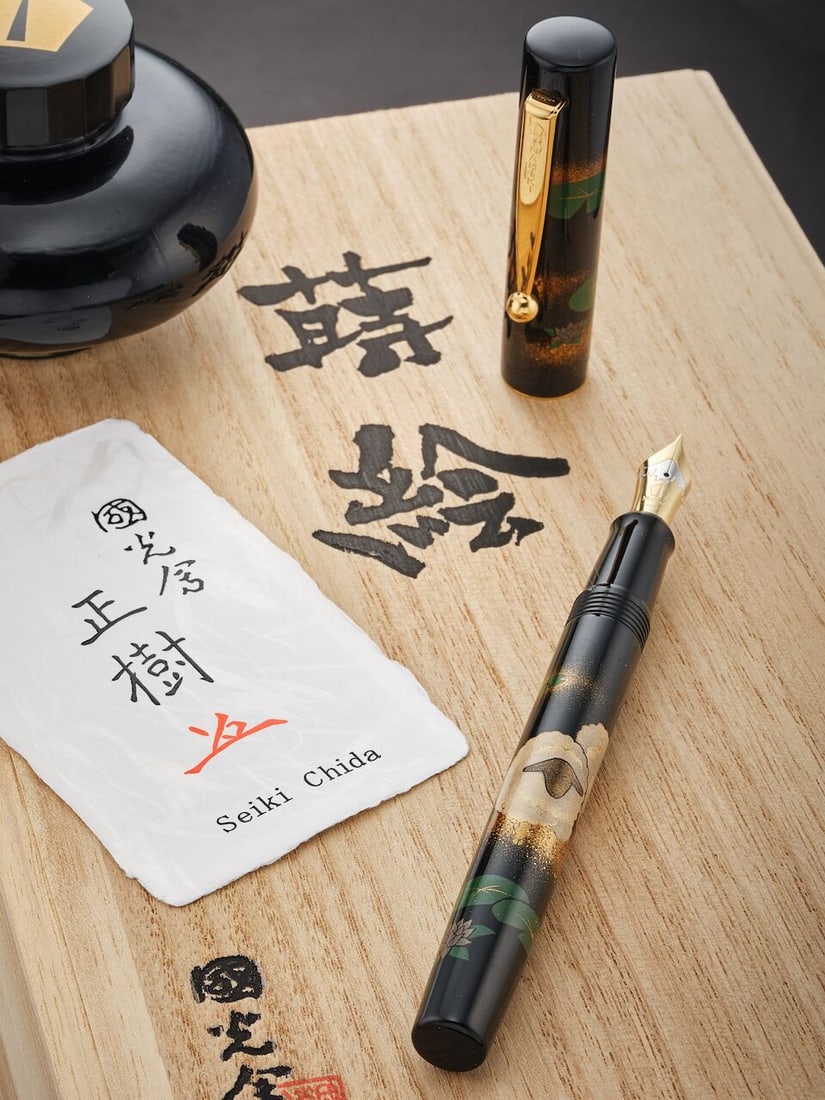 蒔絵
國光會
正樹
Seiki Chida
國光會